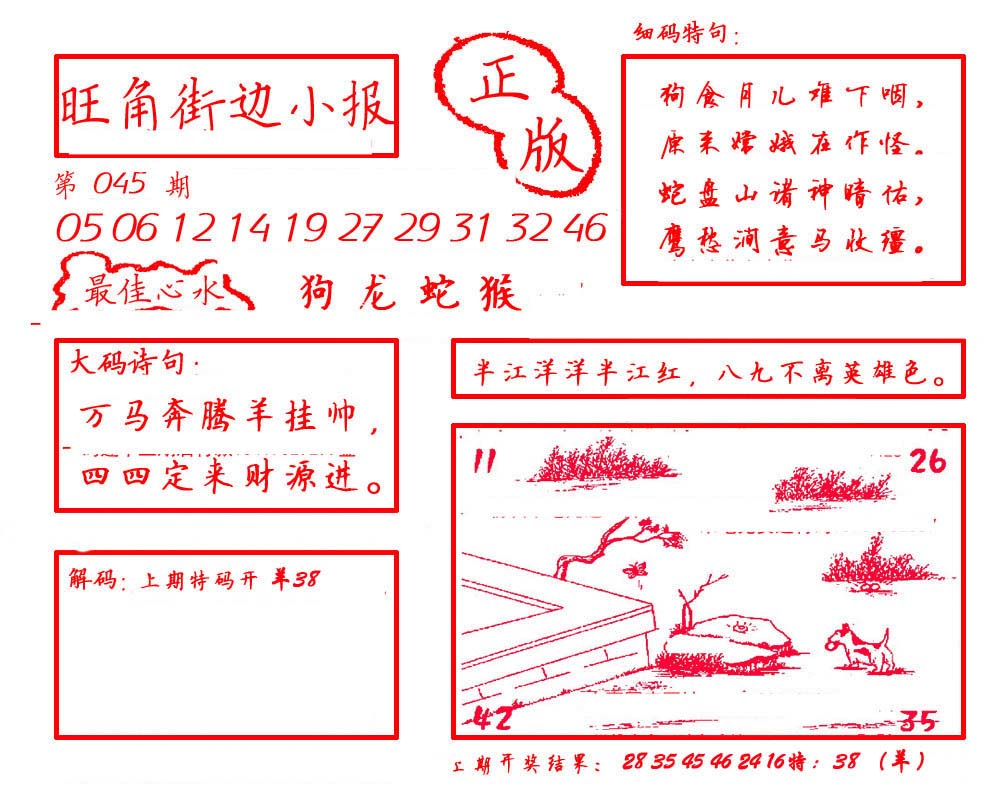 细码特句：
正版
旺角街边小报
狗食月儿难下咽，
原来嫦娥在作怪。
蛇盘山诸神暗佑，
鹰愁涧意马收缰。
第 045 期
05 06 12 14 19 27 29 31 32 46
最佳心水
狗 龙 蛇 猴
大码诗句：
万马奔腾羊挂帅，
四四定来财源进。
半江洋洋半江红，八九不离英雄色。
11
26
42
35
解码：上期特码开 羊38
上期开奖结果： 28 35 45 46 24 16特：38 （羊）